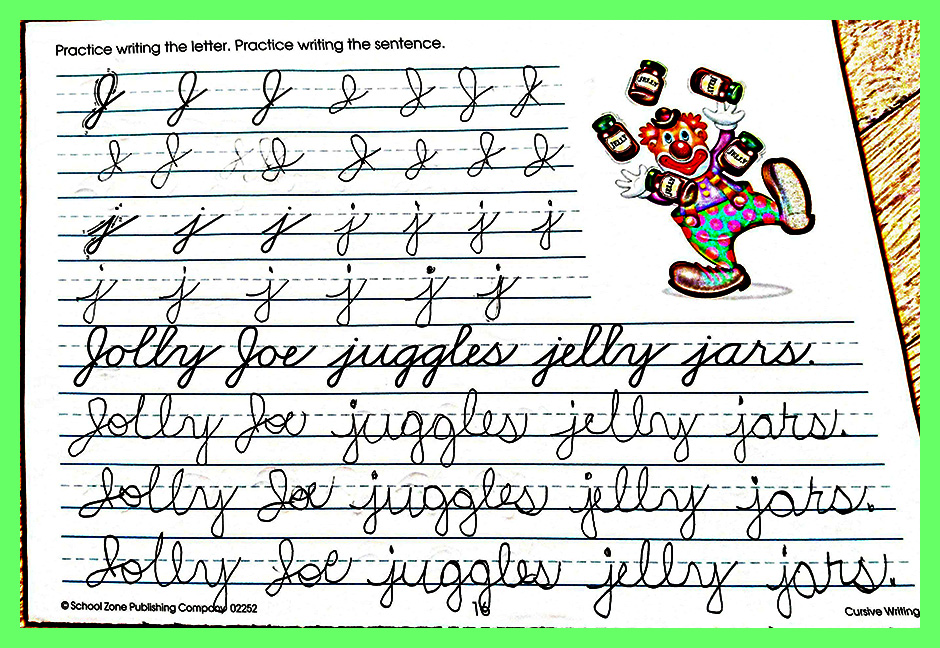 Practice writing the letter. Practice writing the sentence.
J J J J J J J
J J J J J J J
j j j j j j j
j j j j j j
JELLY JELLY JELLY JELLY JELLY
Jolly Joe juggles jelly jars.
Jolly Joe juggles jelly jars.
Jolly Joe juggles jelly jars.
Jolly Joe juggles jelly jars.
© School Zone Publishing Company 02252
16
Cursive Writing